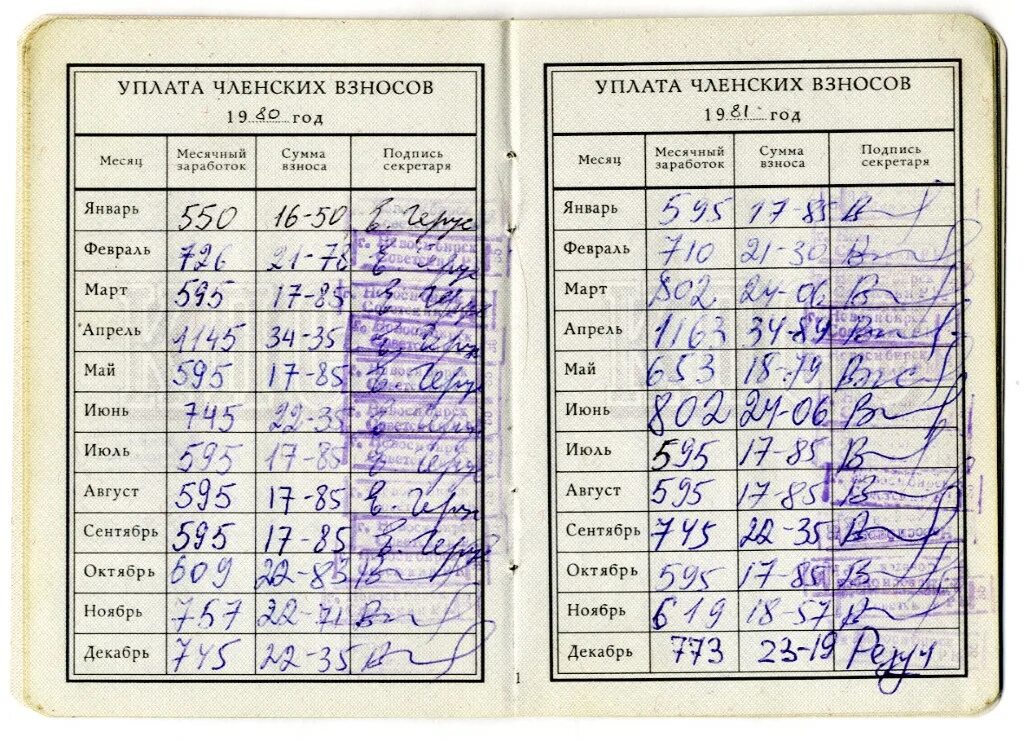 УПЛАТА ЧЛЕНСКИХ ВЗНОСОВ
1980 год
Месяц Месячный заработок Сумма взноса Подпись секретаря
Январь 550 16-50 Е. Герус
Февраль 726 21-78 Е. Герус
Март 595 17-85 Е. Герус
Апрель 1145 34-35 Е. Герус
Май 595 17-85 Е. Герус
Июнь 745 22-35
Июль 595 17-85 Е. Герус
Август 595 17-85 Е. Герус
Сентябрь 595 17-85 Е. Герус
Октябрь 609 22-83
Ноябрь 757 22-71
Декабрь 745 22-35
1
УПЛАТА ЧЛЕНСКИХ ВЗНОСОВ
1981 год
Месяц Месячный заработок Сумма взноса Подпись секретаря
Январь 595 17-85
Февраль 710 21-30
Март 802 24-06
Апрель 1163 34-89
Май 653 18-79
Июнь 802 24-06
Июль 595 17-85
Август 595 17-85
Сентябрь 745 22-35
Октябрь 595 17-85
Ноябрь 619 18-57
Декабрь 773 23-19
г. Новосибирск
Советский